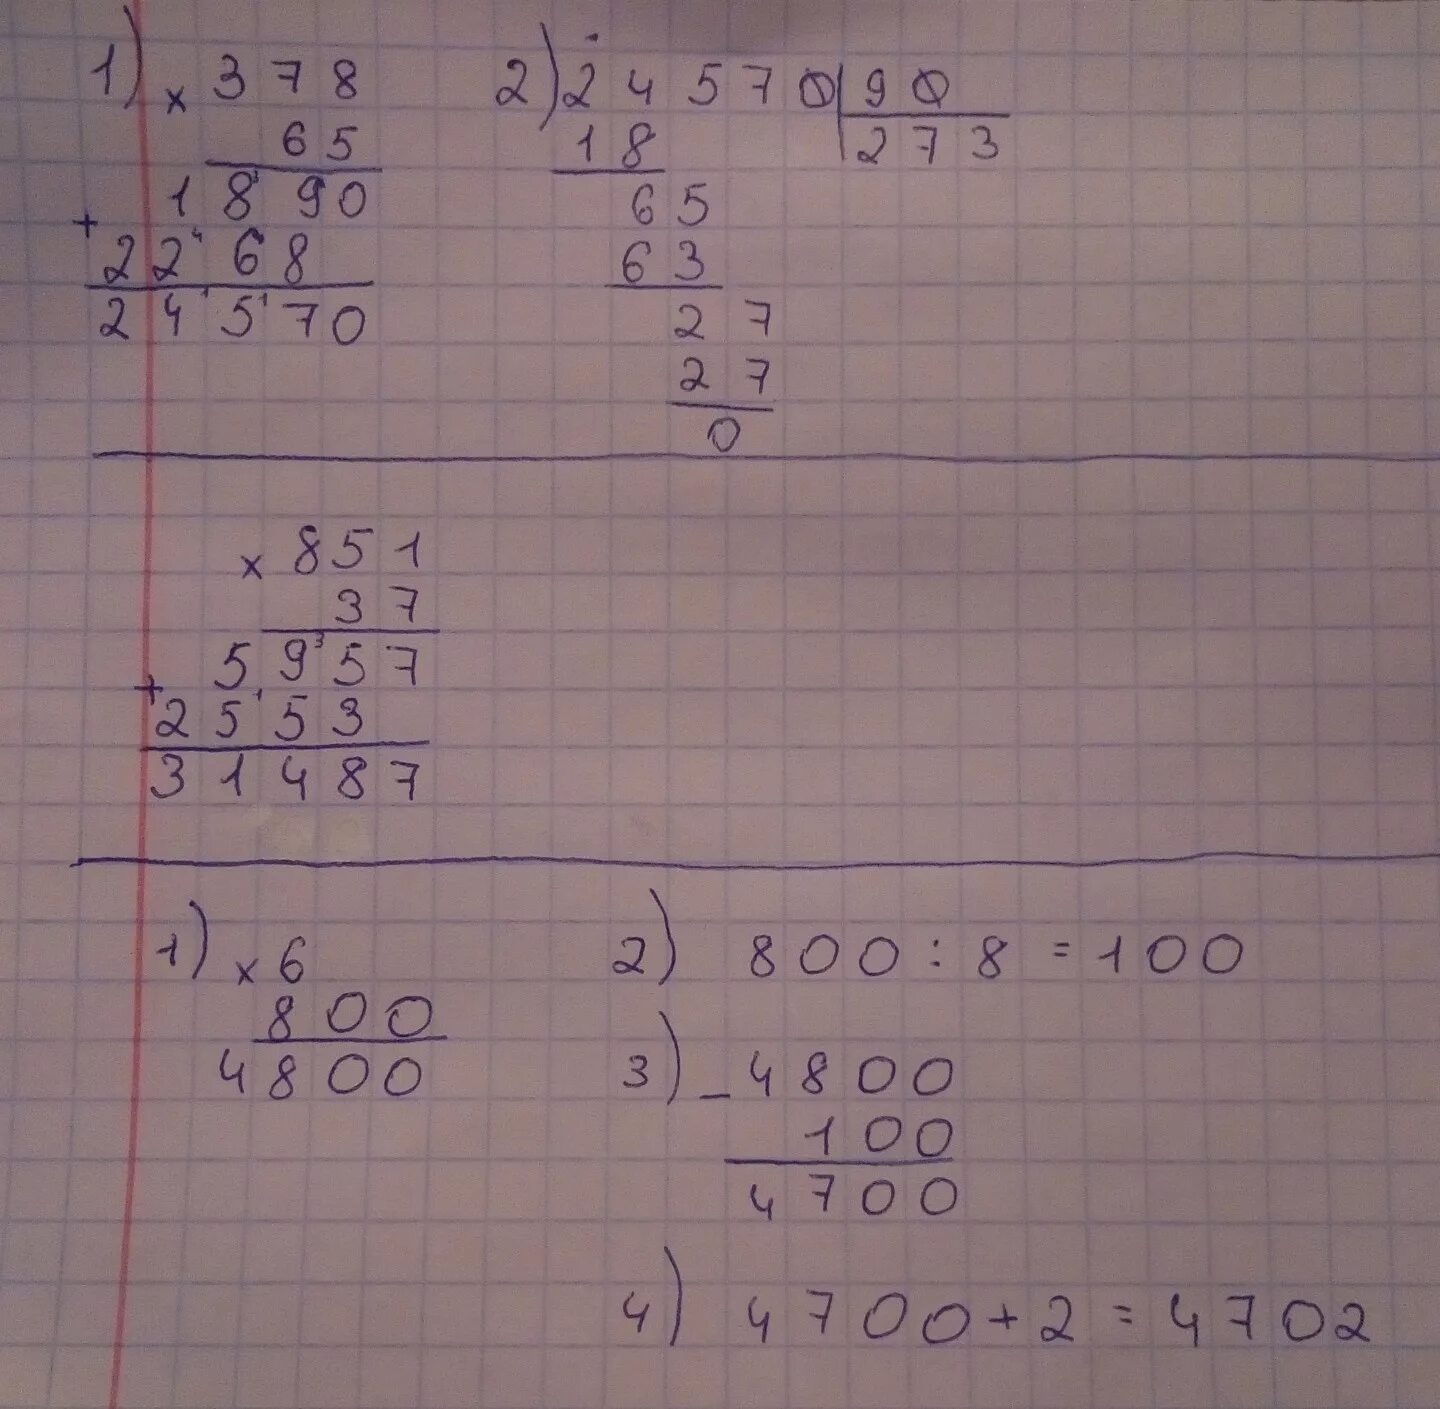 1) × 378
65
1890
+ 2268
24570
2) 24570 | 90
18 | 273
65
63
27
27
0
× 851
37
5957
+ 2553
31487
1) × 6
800
4800
2) 800 : 8 = 100
3) - 4800
100
4700
4) 4700 + 2 = 4702